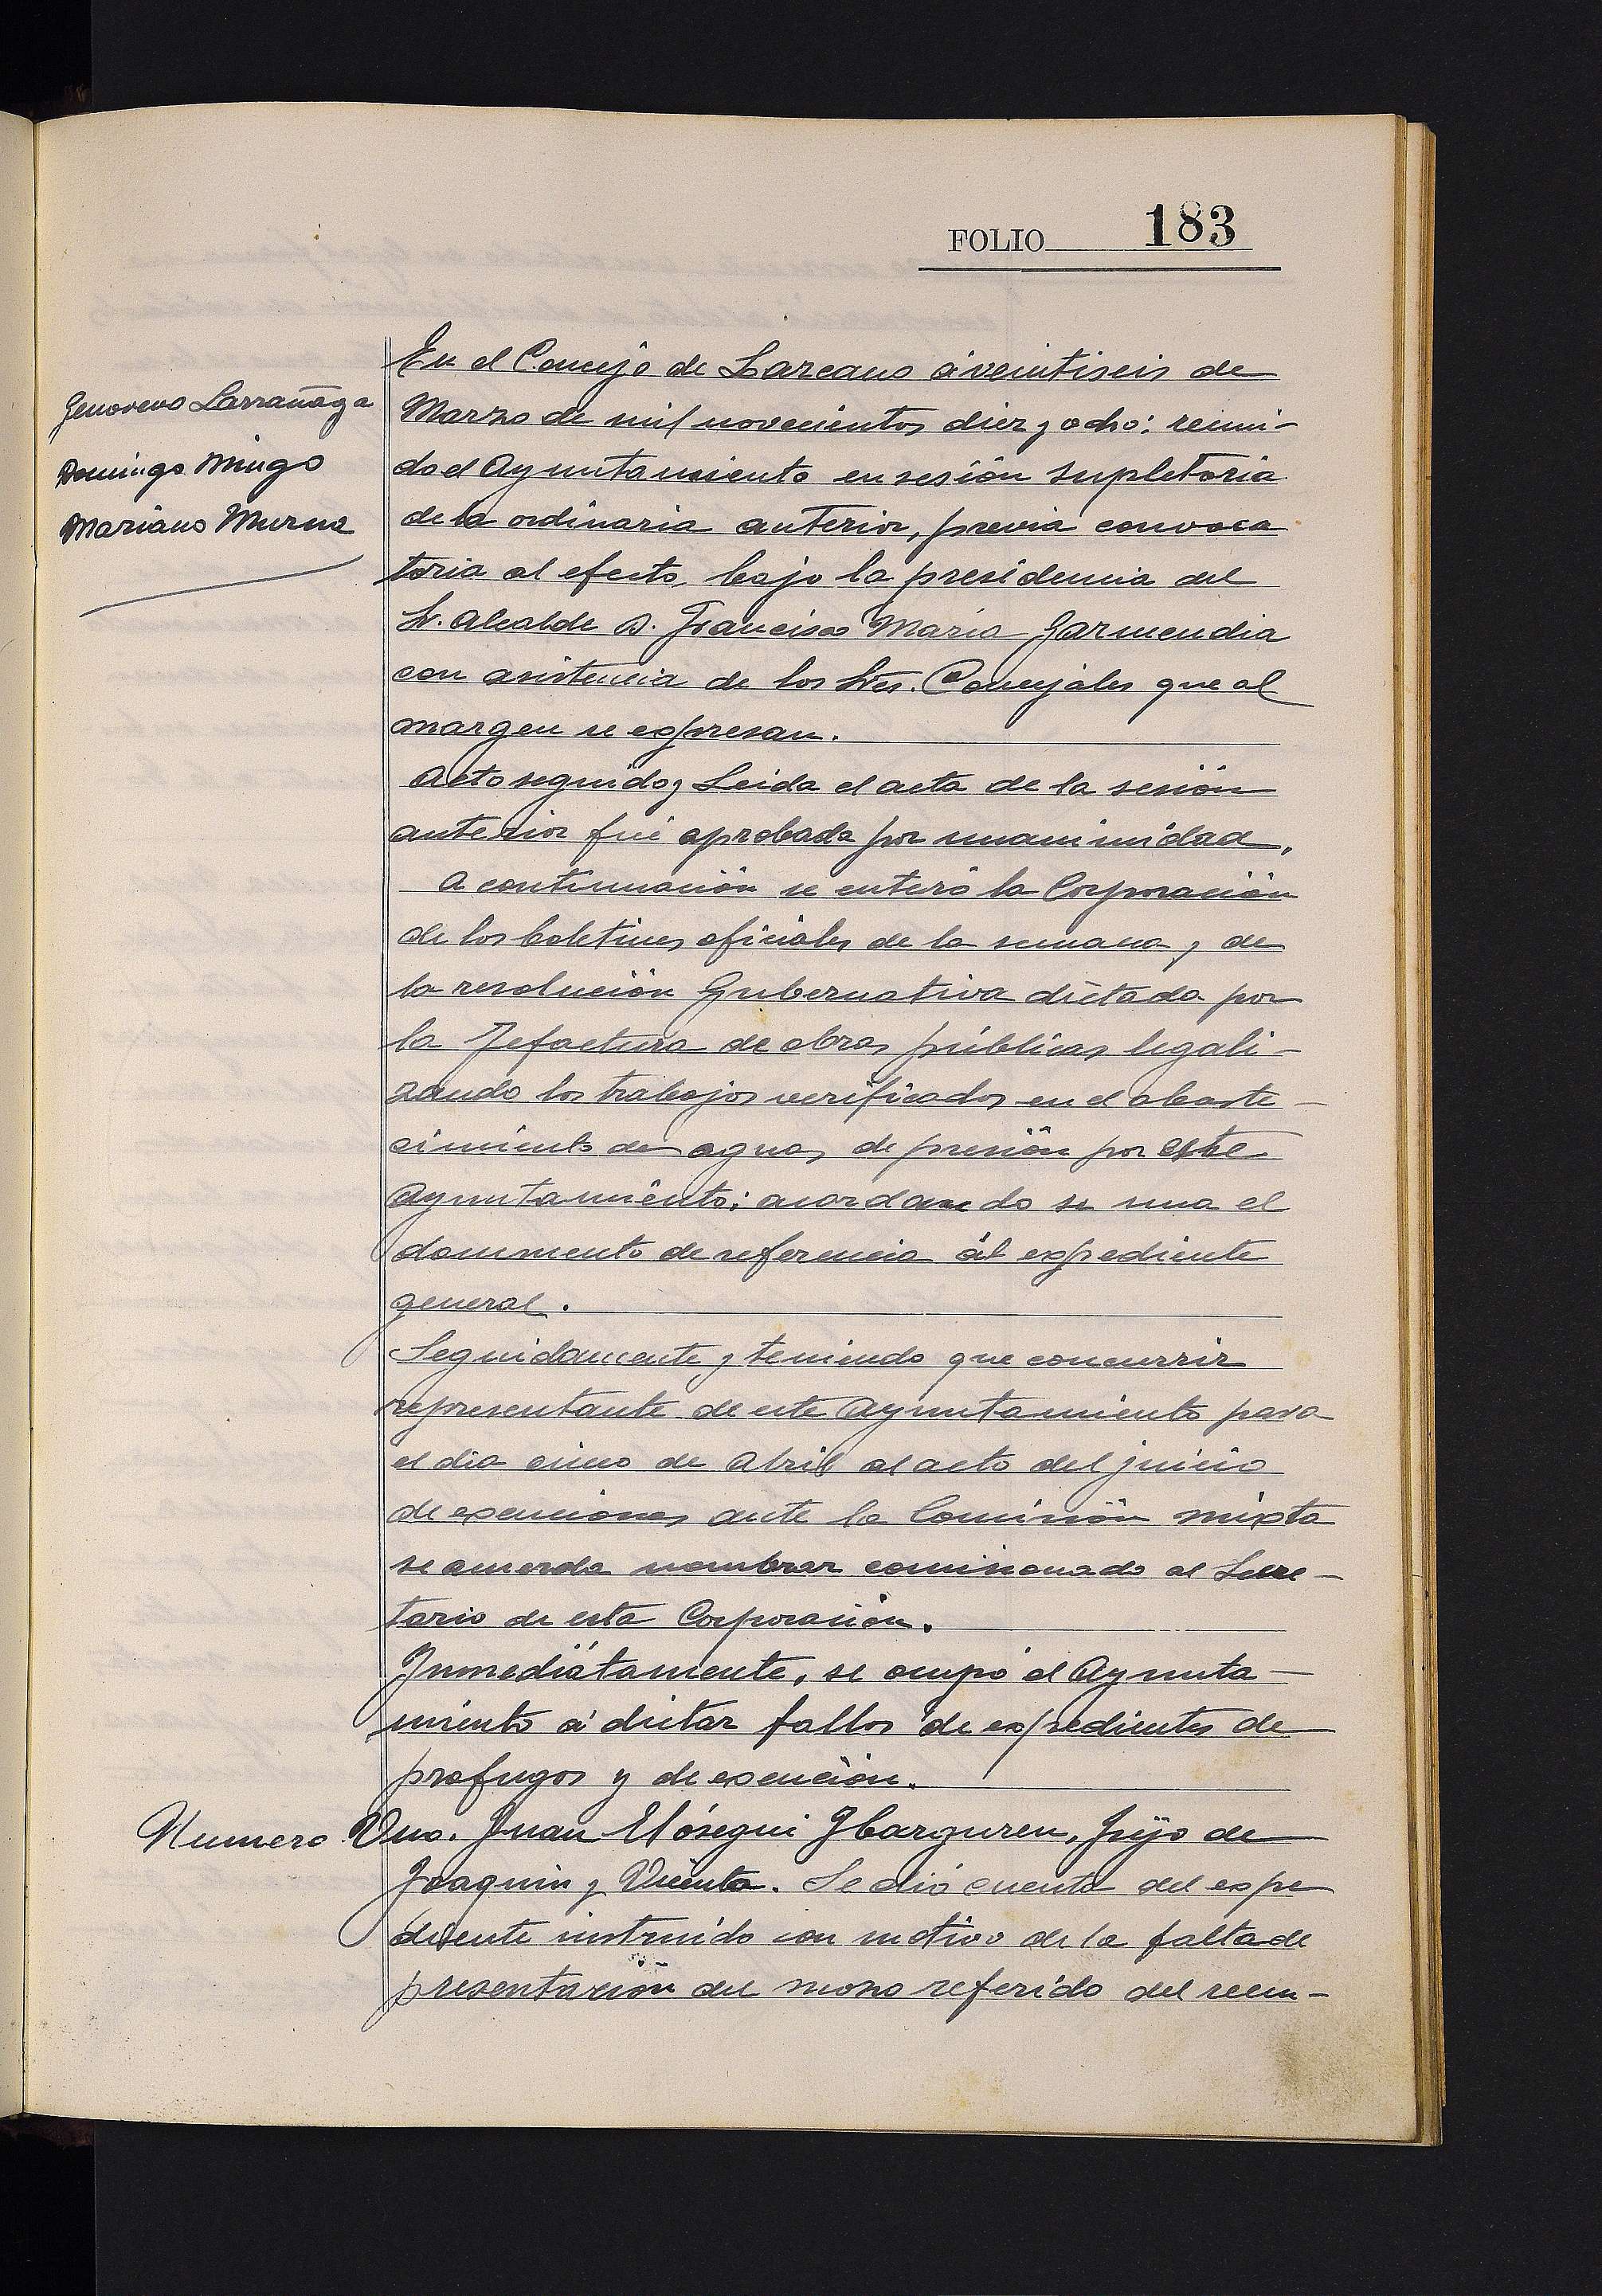 FOLIO 183
Genoveno Larrañaga
Domingo Mingo
Mariano Murua
En el Concejo de Lazcano á veintiseis de
Marzo de mil novecientos diez y ocho: reuni-
do el Ayuntamiento en sesión supletoria
de la ordinaria anterior, previa convoca
toria al efecto, bajo la presidencia del
Sr. Alcalde D. Francisco María Garmendia
con asistencia de los Sres. Concejales que al
margen se expresan.
Acto seguido y Leida el acta de la sesión
anterior fué aprobada por unanimidad.
A continuación se enteró la Corporación
de los boletines oficiales de la semana y de
la resolución Gubernativa dictada por
la Jefactura de obras públicas legali-
zando los trabajos verificados en el abaste-
cimiento de aguas de presión por este
Ayuntamiento: acordando se una el
documento de referencia al expediente
general.
Seguidamente y teniendo que concurrir
representante de este Ayuntamiento para
el dia cinco de Abril al acto del juicio
de exenciones ante la Comisión mixta
se acuerda nombrar comisionado al Secre-
tario de esta Corporación.
Inmediátamente, se ocupó el Ayunta-
miento á dictar fallos de expedientes de
profugos y de exención.
Numero Uno. Juan Elósegui Ybarguren, hijo de
Joaquin y Vicenta. Se dió cuenta del expe
diente instruido con motivo de la falta de
presentación del mozo referido del reem-